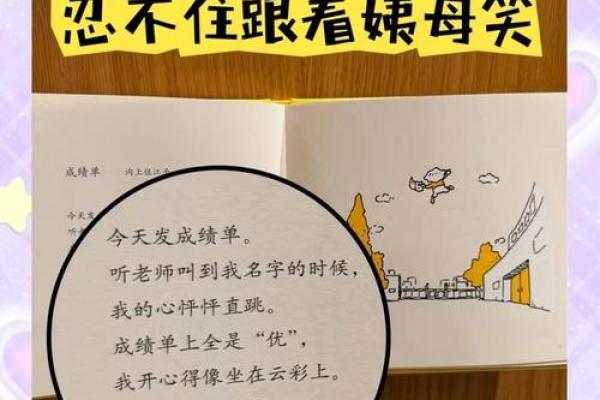 忍不住跟着姨母笑
成绩单
今天发
听老
今天发成绩单。
听老师叫到我名字的时候，
我的心怦怦直跳。
成绩单上全是“优”，
我开心得像坐在云彩上。